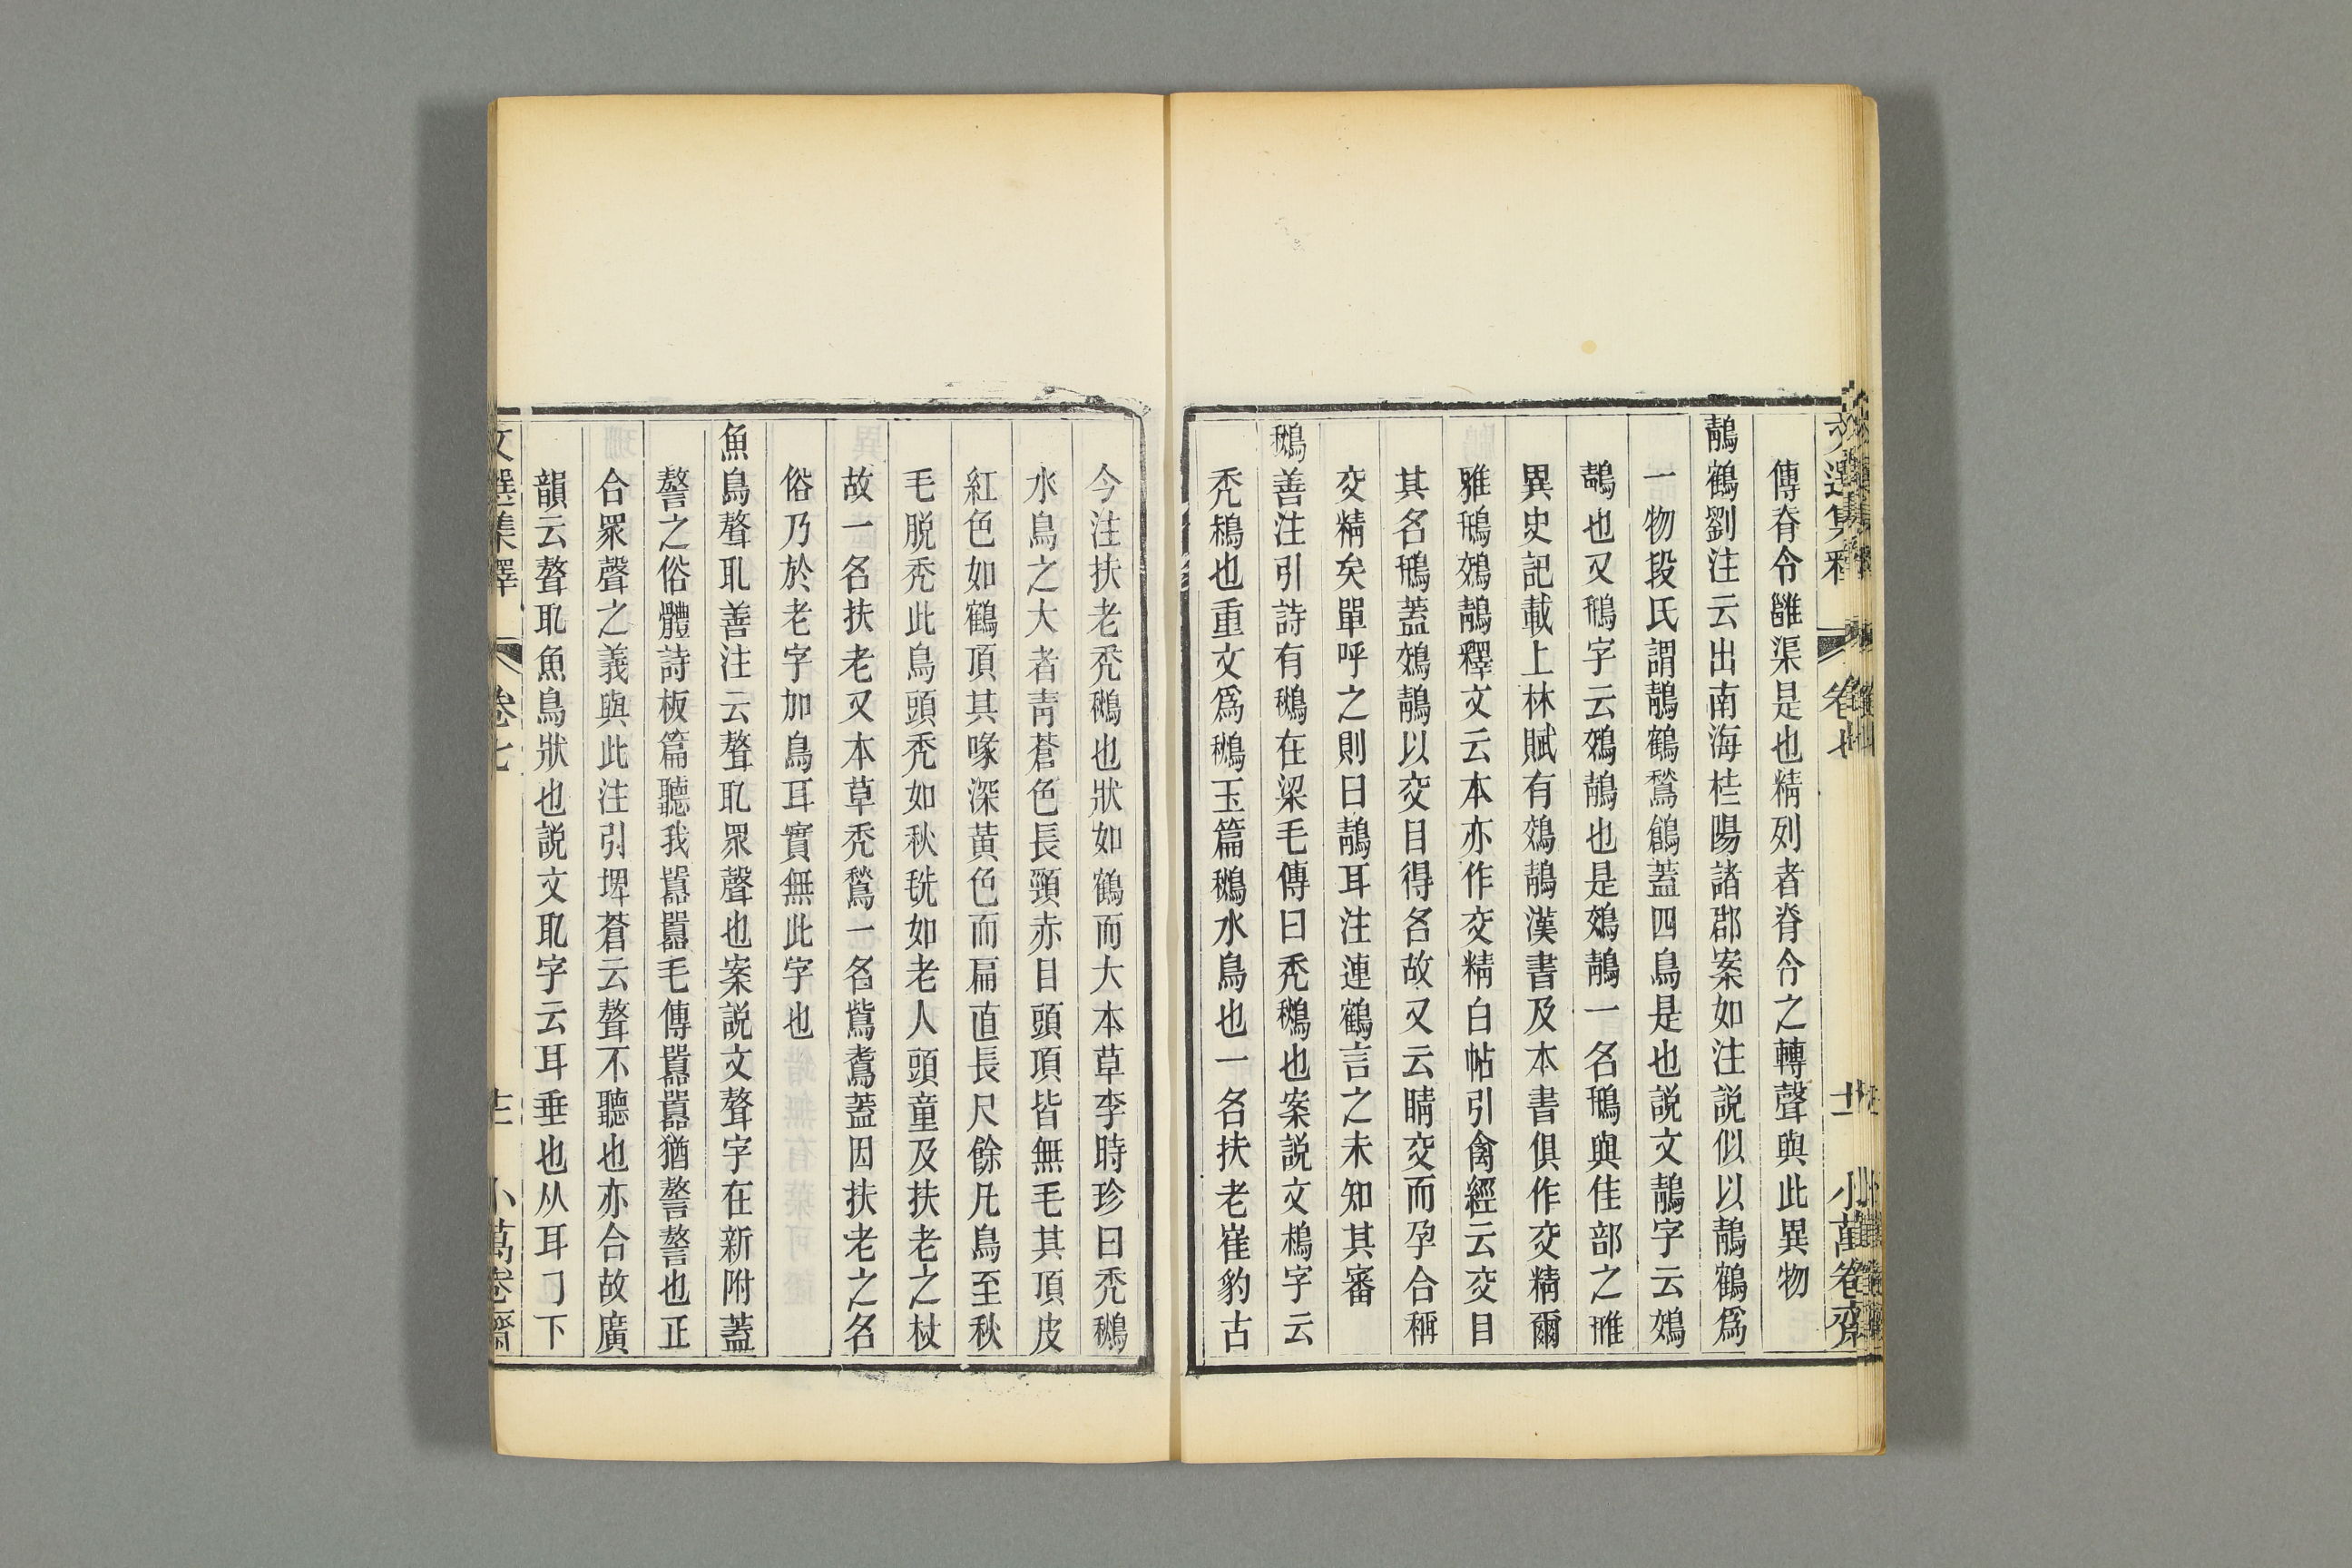 傳脊令雝渠是也精列者脊令之轉聲與此異物
鶄鶴劉注云出南海桂陽諸郡案如注説似以鶄鶴爲
一物段氏謂鶄鶴鶖鶬蓋四鳥是也説文鶄字云鵁
鶄也又鳽字云鵁鶄也是鵁鶄一名鳽與隹部之雃
異史記載上林賦有鵁鶄漢書及本書俱作交精爾
雅鳽鵁鶄釋文云本亦作交精白帖引禽經云交目
其名鳽蓋鵁鶄以交目得名故又云睛交而孕合稱
交精矣單呼之則曰鶄耳注連鶴言之未知其審
鶖善注引詩有鶖在梁毛傳曰秃鶖也案説文䳓字云
秃鶖也重文爲鶖玉篇鶖水鳥也一名扶老崔豹古
今注扶老秃鶖也狀如鶴而大本草李時珍曰秃鶖
水鳥之大者青蒼色長頸赤目頭項皆無毛其頂皮
紅色如鶴頂其喙深黄色而扁直長尺餘凡鳥至秋
毛脱秃此鳥頭秃如秋毨如老人頭童及扶老之杖
故一名扶老又本草秃鶖一名鴜䳓蓋因扶老之名
俗乃於老字加鳥耳實無此字也
魚鳥聱耴善注云聱耴眾聲也案説文聱字在新附蓋
謷之俗體詩板篇聽我嚻嚻毛傳嚻嚻猶謷謷也正
合眾聲之義與此注引埤蒼云聱不聽也亦合故廣
韻云聱耴魚鳥狀也説文耴字云耳垂也从耳㇆下
文選集釋
卷七
十一
小萬卷齋
文選集釋
卷七
小萬卷齋